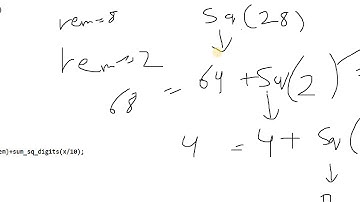 rem=8
Sq(28)
rem=2
68 = 64 + Sq(2)
4 = 4 + Sq(
em)+sum_sq_digits(x/10);